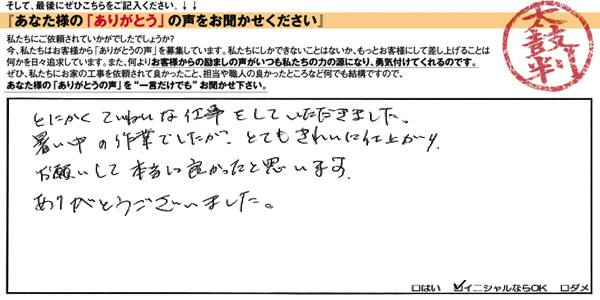 そして、最後にぜひこちらをご記入ください。↓↓
『あなた様の「ありがとう」の声をお聞かせください』
私たちにご依頼されていかがでしたでしょうか?
今、私たちはお客様から「ありがとうの声」を募集しています。私たちにしかできないことはないか、もっとお客様にして差し上げることは
何かを日々追求しています。また、何よりお客様からの励ましの声がいつも私たちの力の源になり、勇気付けてくれるのです。
ぜひ、私たちにお家の工事を依頼されて良かったこと、担当や職人の良かったところなど何でも結構ですので、
あなた様の「ありがとうの声」を"一言だけでも"お聞かせ下さい。
太鼓判
とにかくていねいな仕事をしていただきました。
暑い中の作業でしたが、とてもきれいに仕上がり
お願いして本当に良かったと思います。
ありがとうございました。
□はい ☑イニシャルならOK □ダメ